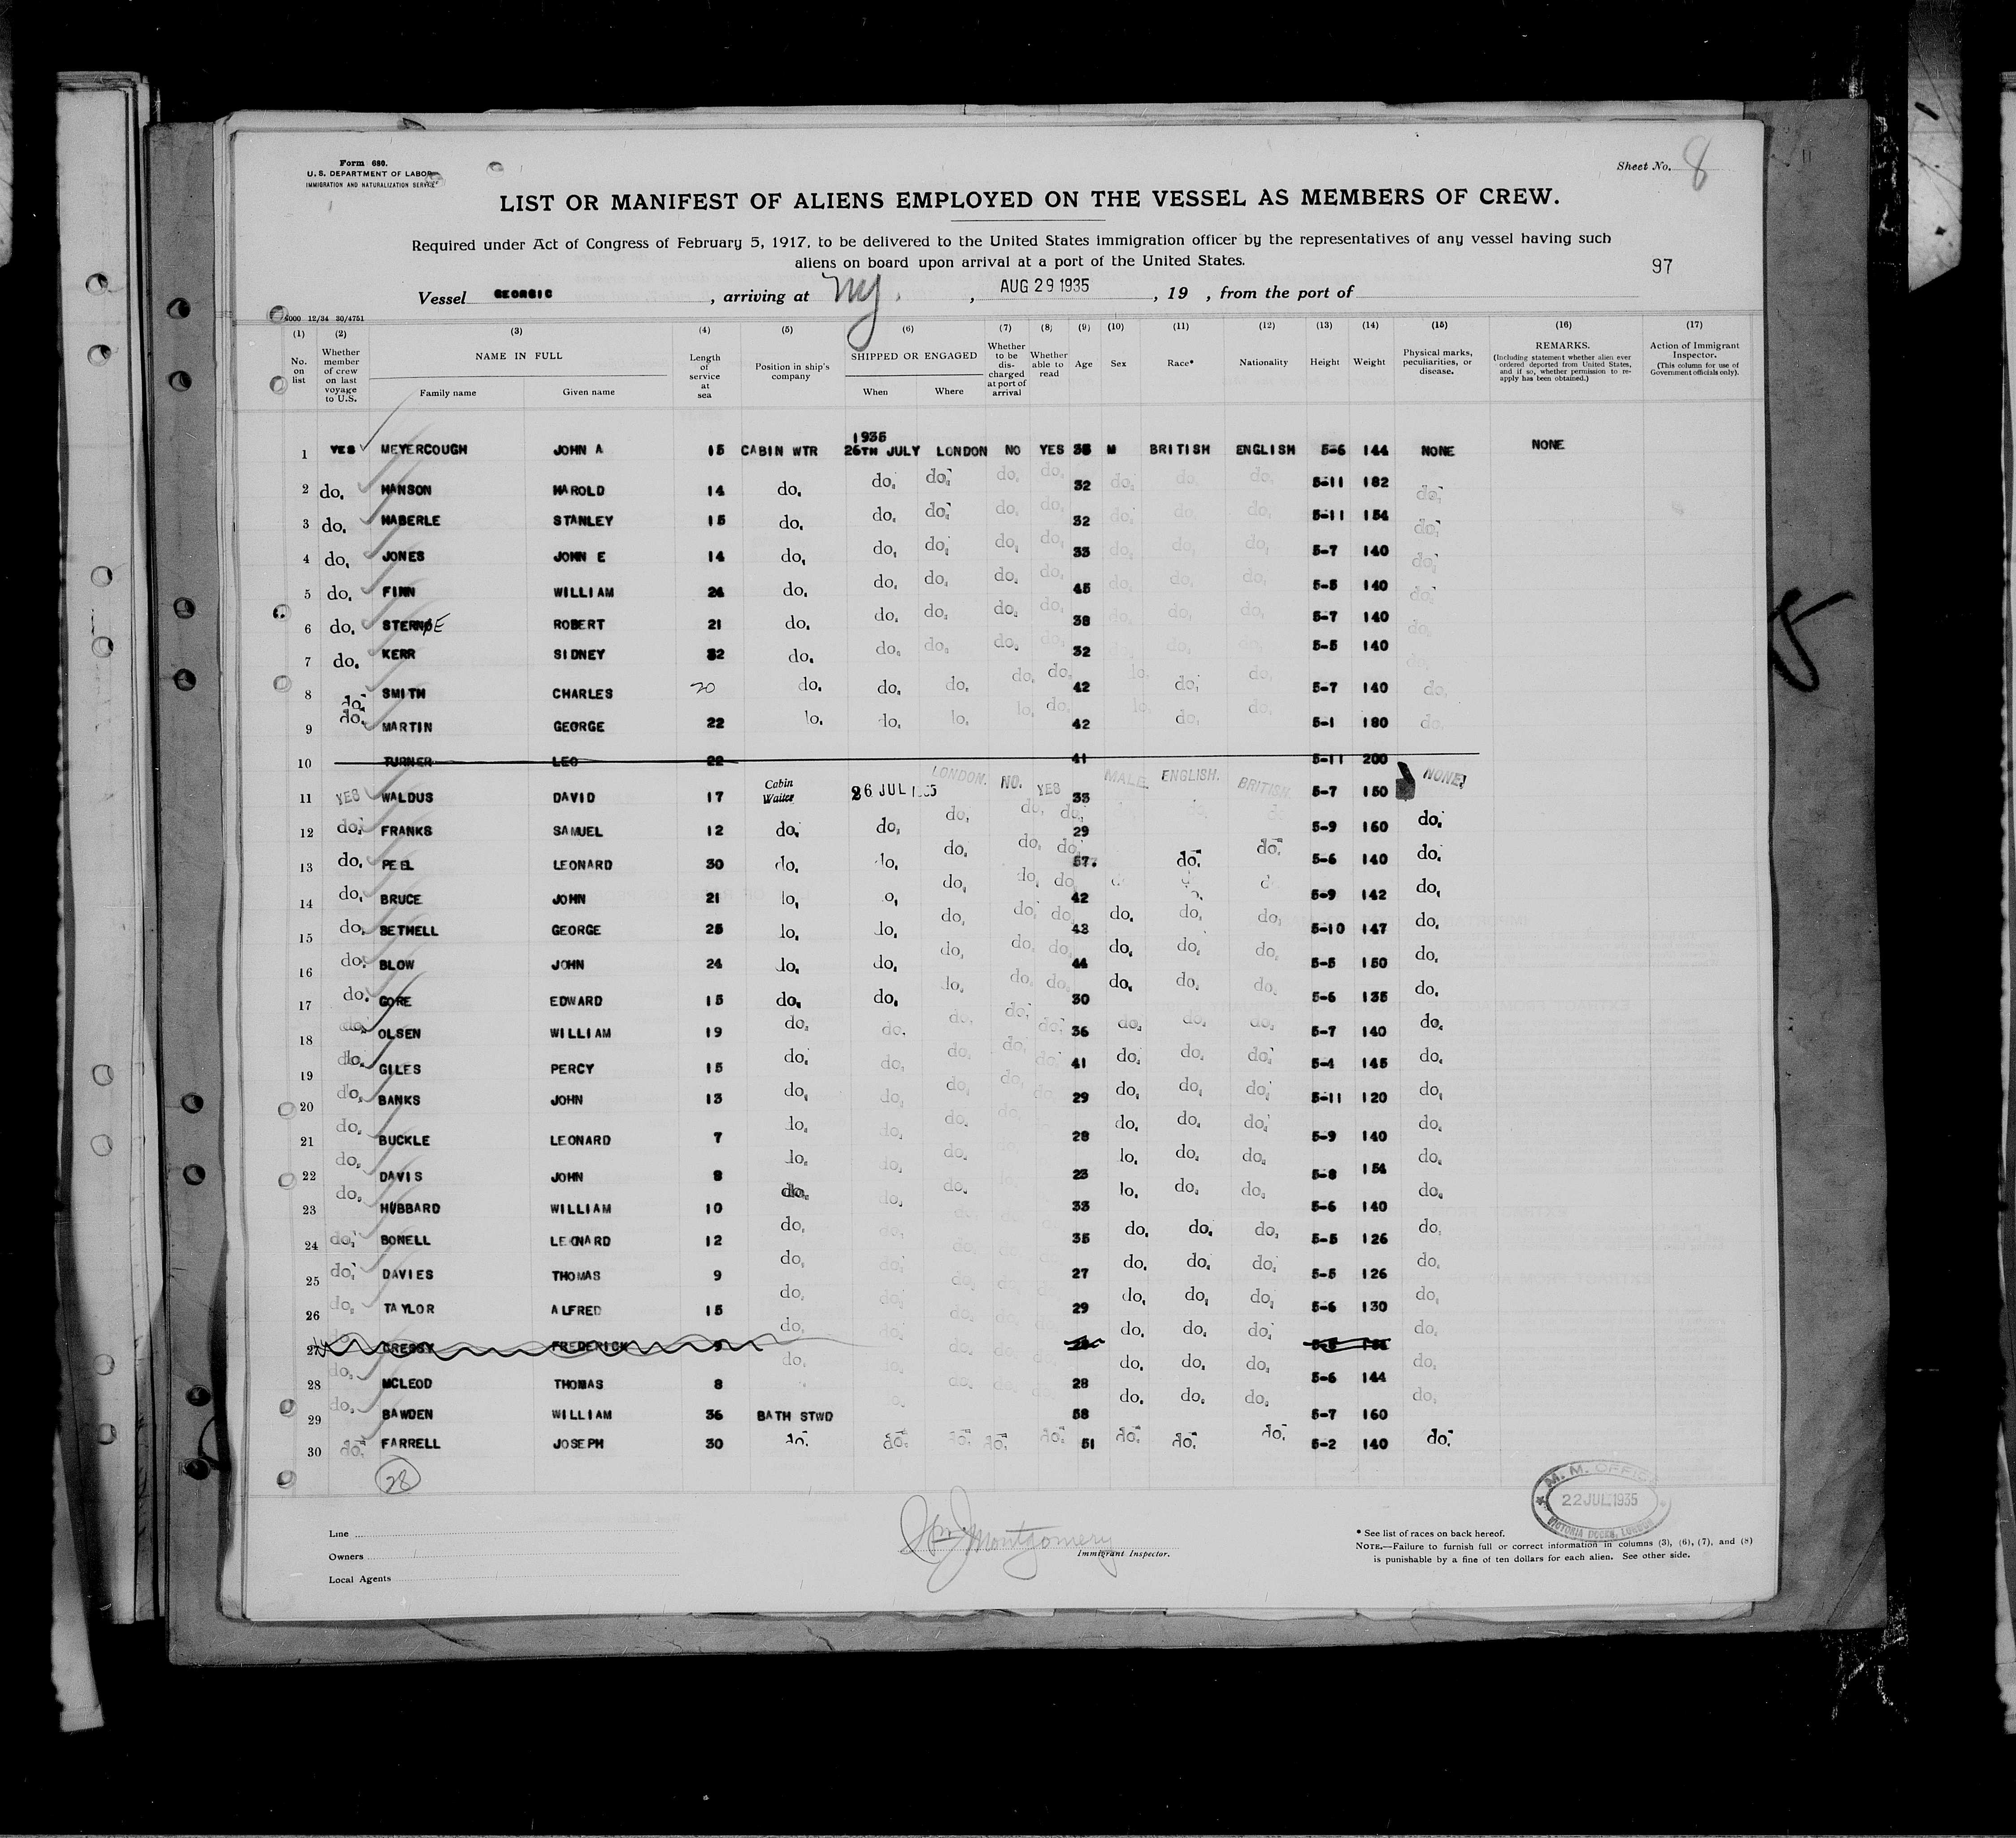 Form 680.
U. S. DEPARTMENT OF LABOR
IMMIGRATION AND NATURALIZATION SERVICE
Sheet No. 8
LIST OR MANIFEST OF ALIENS EMPLOYED ON THE VESSEL AS MEMBERS OF CREW.
Required under Act of Congress of February 5, 1917, to be delivered to the United States immigration officer by the representatives of any vessel having such
aliens on board upon arrival at a port of the United States.
97
Vessel GEORGIC , arriving at NY. , AUG 29 1935 , 19 , from the port of
6000 12/34 30/4751
(1) (2) (3) (4) (5) (6) (7) (8) (9) (10) (11) (12) (13) (14) (15) (16) (17)
No. on list
Whether member of crew on last voyage to U.S.
NAME IN FULL
Family name Given name
Length of service at sea
Position in ship's company
SHIPPED OR ENGAGED
When Where
Whether to be discharged at port of arrival
Whether able to read
Age
Sex
Race*
Nationality
Height
Weight
Physical marks, peculiarities, or disease.
REMARKS.
(Including statement whether alien ever ordered deported from United States, and if so, whether permission to reapply has been obtained.)
Action of Immigrant Inspector.
(This column for use of Government officials only).
1935
1 YES MEYERCOUGH JOHN A 15 CABIN WTR 26TH JULY LONDON NO YES 35 M BRITISH ENGLISH 5-6 144 NONE NONE
2 do. HANSON HAROLD 14 do. do. do. do. do. 32 do. do. do. 5-11 182 do.
3 do. HABERLE STANLEY 15 do. do. do. do. do. 32 do. do. do. 5-11 154 do.
4 do. JONES JOHN E 14 do. do. do. do. do. 33 do. do. do. 5-7 140 do.
5 do. FINN WILLIAM 24 do. do. do. do. do. 45 do. do. do. 5-5 140 do.
6 do. STERNE ROBERT 21 do. do. do. do. do. 38 do. do. do. 5-7 140 do.
7 do. KERR SIDNEY 32 do. do. do. do. do. 32 do. do. do. 5-5 140 do.
8 do. SMITH CHARLES 20 do. do. do. do. do. 42 do. do. do. 5-7 140 do.
9 do. MARTIN GEORGE 22 do. do. do. do. do. 42 do. do. do. 5-1 180 do.
10 TURNER LEO 22 41 5-11 200
11 YES WALDUS DAVID 17 Cabin Waiter 26 JUL 1935 LONDON. NO. YES 33 MALE. ENGLISH. BRITISH. 5-7 150 NONE
12 do. FRANKS SAMUEL 12 do. do. do. do. do. 29 5-9 160 do.
13 do. PEEL LEONARD 30 do. do. do. do. do. 57. do. do. 5-6 140 do.
14 do. BRUCE JOHN 21 do. do. do. do. do. 42 5-9 142 do.
15 do. BETHELL GEORGE 25 do. do. do. do. do. 43 do. do. do. 5-10 147 do.
16 do. BLOW JOHN 24 do. do. do. do. do. 44 do. do. do. 5-5 150 do.
17 do. GORE EDWARD 15 do. do. do. do. do. 30 do. do. do. 5-6 135 do.
18 do. OLSEN WILLIAM 19 do. do. do. do. do. 36 do. do. do. 5-7 140 do.
19 do. GILES PERCY 15 do. do. do. do. do. 41 do. do. do. 5-4 145 do.
20 do. BANKS JOHN 13 do. do. do. do. do. 29 do. do. do. 5-11 120 do.
21 do. BUCKLE LEONARD 7 do. do. do. 28 do. do. do. 5-9 140 do.
22 do. DAVIS JOHN 8 do. do. do. 23 do. do. do. 5-8 154 do.
23 do. HUBBARD WILLIAM 10 do. do. do. 33 do. do. do. 5-6 140 do.
24 do. BONELL LEONARD 12 do. do. do. 35 do. do. do. 5-5 126 do.
25 do. DAVIES THOMAS 9 do. do. do. 27 do. do. do. 5-5 126 do.
26 do. TAYLOR ALFRED 15 do. do. do. 29 do. do. do. 5-6 130 do.
27 CRESSY FREDERICK 9 do. do. do. do. do. do. do.
28 do. MCLEOD THOMAS 8 do. do. 28 do. do. do. 5-6 144 do.
29 do. BAWDEN WILLIAM 36 BATH STWD 58 do. do. do. 5-7 160 do.
30 do. FARRELL JOSEPH 30 do. do. do. do. do. 51 do. do. do. 5-2 140 do.
28
M. M. OFFICE
22 JUL 1935
VICTORIA DOCKS, LONDON
Line
Owners
Local Agents
Montgomery
Immigrant Inspector.
* See list of races on back hereof.
NOTE.—Failure to furnish full or correct information in columns (3), (6), (7), and (8)
is punishable by a fine of ten dollars for each alien. See other side.